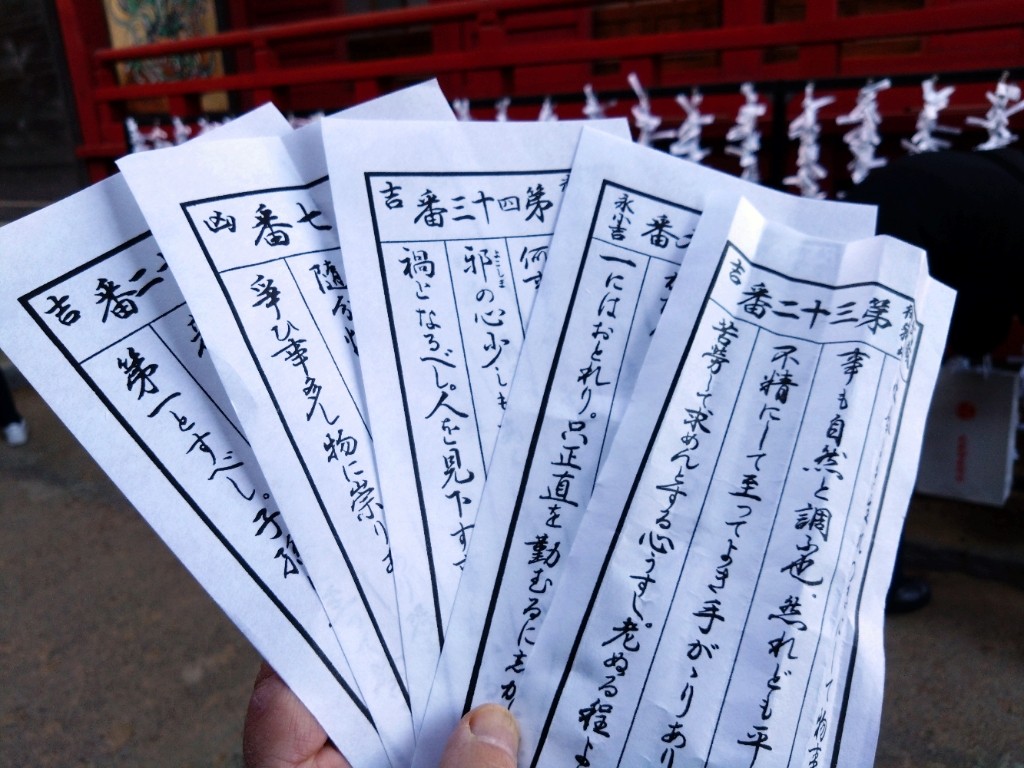 番二
吉
第一とすべし。子孫
番七
凶
随分
爭ひ事多し物に崇りま
第四十三番
吉
何
邪の心少しも
よこしま
禍となるべし。人を見下す
番二
永小吉
一にはおとれり。只正直を勤むるに
第三十二番
吉
事も自然と調ふ也。然れども平
不精にして至ってよき手がゝりあり
苦労して求めんとする心うすし。老ぬる程よ